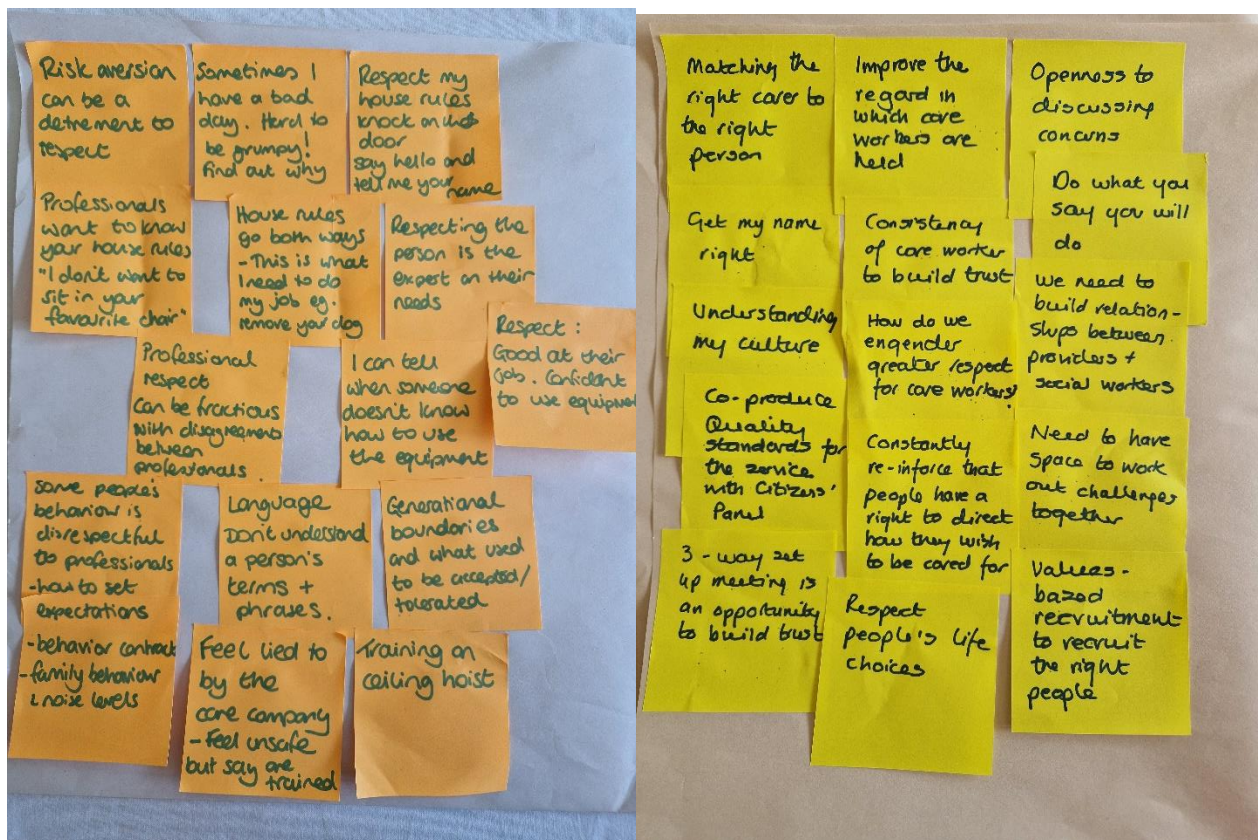 Risk aversion
can be a
detrement to
respect
Sometimes I
have a bad
day. Hard to
be grumpy!
Find out why
Respect my
house rules
knock on
door
say hello and
tell me your
name
Professionals
want to know
your house rules
"I don't want to
sit in your
favourite chair"
House rules
go both ways
- This is what
I need to do
my job eg.
remove your dog
Respecting the
person is the
expert on their
needs
Respect :
Good at their
job. Confident
to use equipment
Professional
respect
Can be fractious
with disagreement
between
professionals.
I can tell
when someone
doesn't know
how to use
the equipment
Some people's
behaviour is
disrespectful
to professionals
- how to set
expectations
- behavior contract
- family behaviour
& noise levels
Language
Don't understand
a person's
terms +
phrases.
Generational
boundaries
and what used
to be accepted/
tolerated
Feel lied to
by the
care company
- Feel unsafe
but say are
trained
Training on
ceiling hoist
Matching the
right carer to
the right
person
Improve the
regard in
which care
workers are
held
Openness to
discussing
concerns
Do what you
say you will
do
Get my name
right
Consistency
of care worker
to build trust
We need to
build relation-
ships between
providers +
social workers
Understanding
my culture
How do we
engender
greater respect
for care workers?
Co-produce
Quality
standards for
the service
with Citizens'
Panel
Constantly
re-inforce that
people have a
right to direct
how they wish
to be cared for
Need to have
space to work
out challenges
together
3-way set
up meeting is
an opportunity
to build trust
Respect
people's life
choices
Values-
based
recruitment
to recruit
the right
people